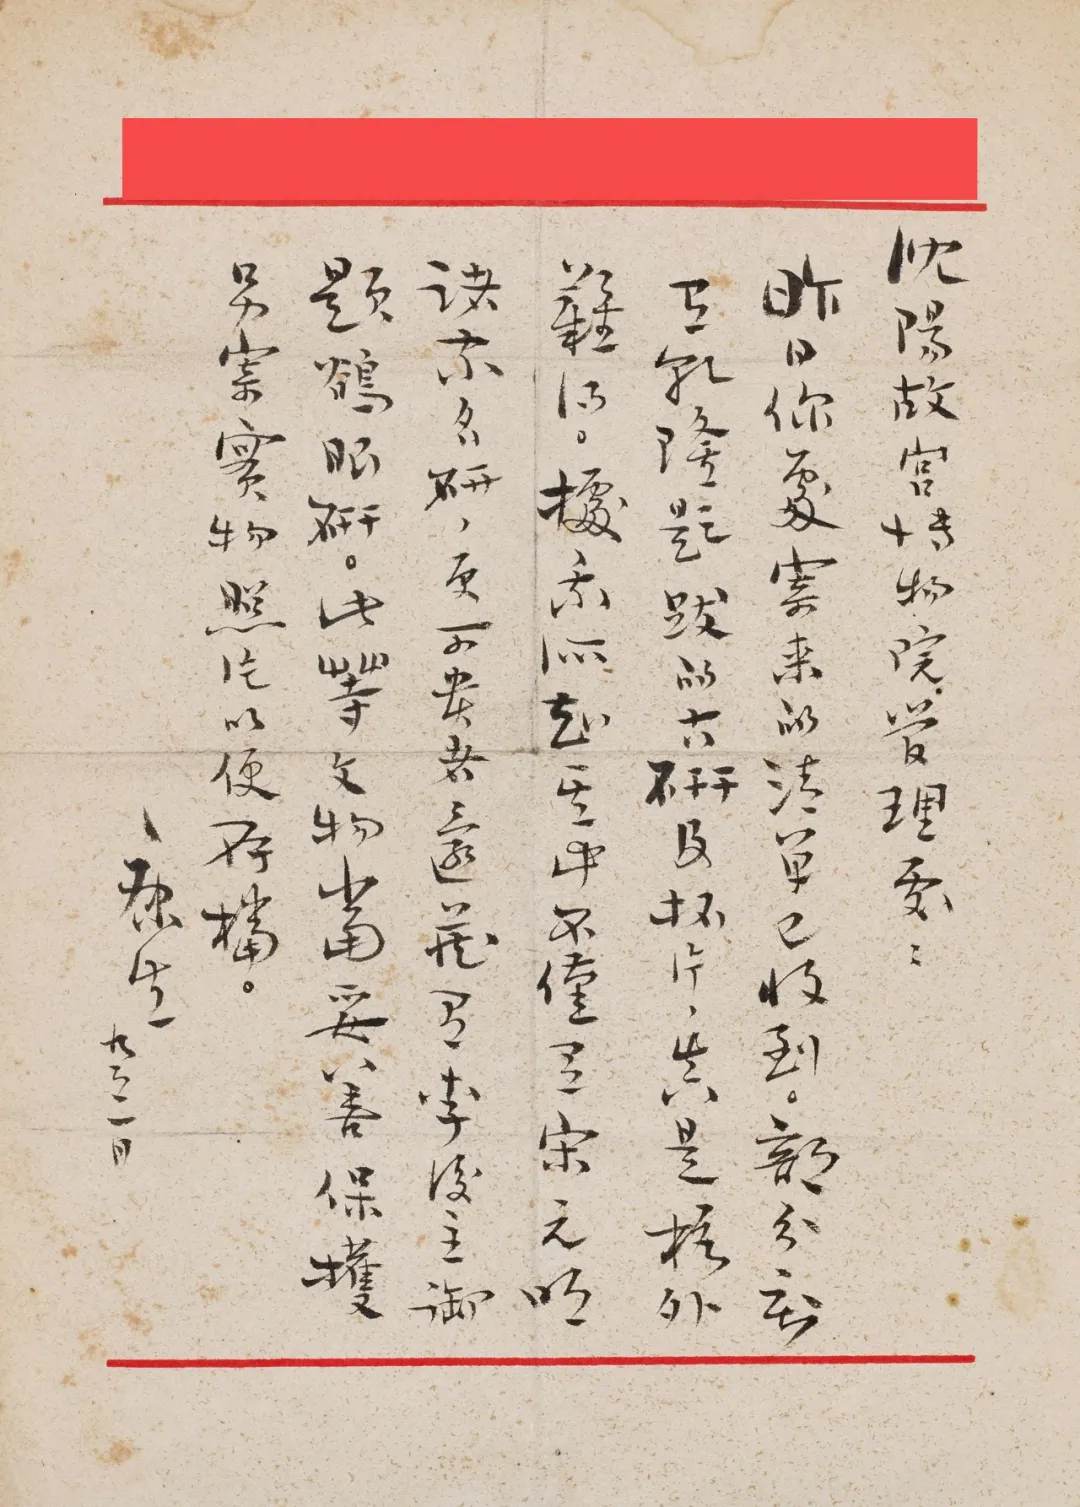 沈陽故宮博物院管理處：
昨日你處寄來的清單已收到。部分刻
且乾隆題跋的古硏及杯片、真是格外
難得。據我所知其中不僅是宋元明
諸家名硏、更可貴者還藏有李後主御
題鶴眼硏。此等文物當妥善保護
另寄實物照片以便存檔。
康生
九二一日